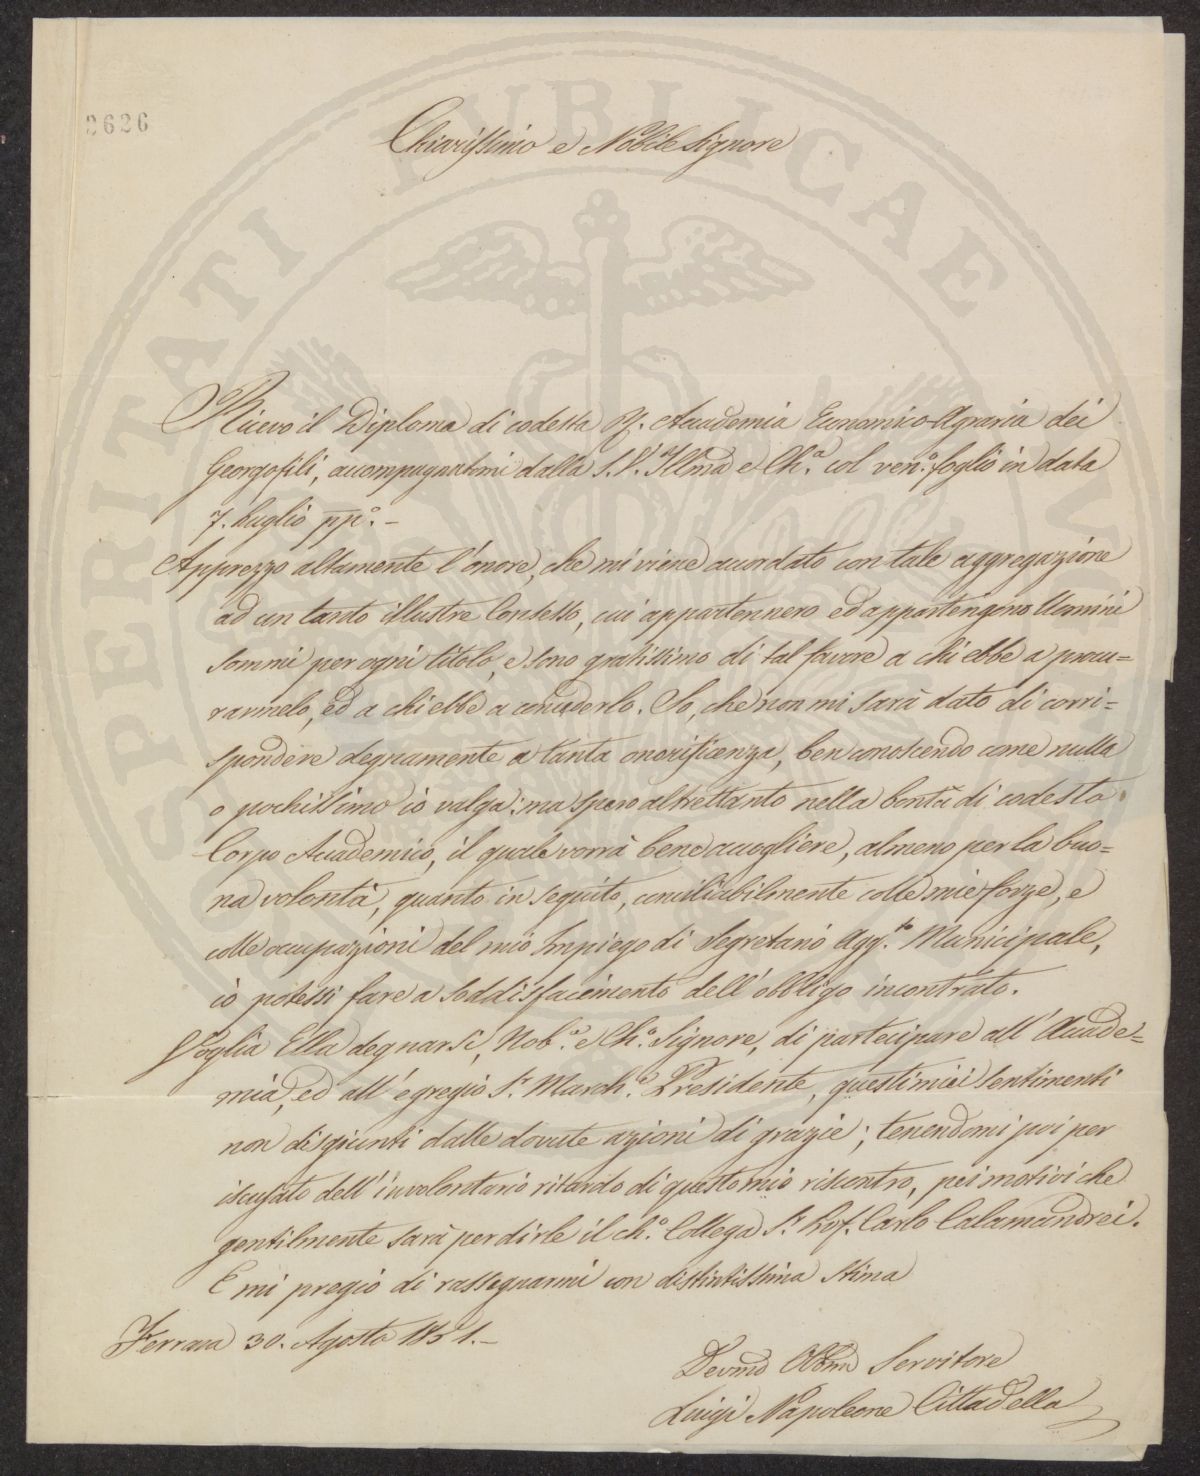 2626
Chiarissimo e Nobile Signore
Ricevo il Diploma di codesta R. Accademia Economico-Agraria dei
Georgofili, accompagnatomi dalla S. V. Illma e Ch.a col ven.o foglio in data
7. Luglio pp.o –
Apprezzo altamente l'onore, che mi viene accordato con tale aggregazione
ad un tanto illustre Consesso, cui appartennero ed appartengono Uomini
sommi per ogni titolo, e sono gratissimo di tal favore a chi ebbe a procu=
rarmelo, ed a chi ebbe a concederlo. So, che non mi sarà dato di corri=
spondere degnamente a tanta onorificenza, ben conoscendo come nulla
o pochissimo io valga: ma spero altrettanto nella bontà di codesto
Corpo Accademico, il quale vorrà bene accogliere, almeno per la buo=
na volontà, quanto in seguito, conciliabilmente colle mie forze, e
colle occupazioni del mio Impiego di Segretario Agg.to Municipale,
io potessi fare a soddisfacimento dell'obbligo incontrato.
Voglia Ella degnarsi, Nob.e e Ch.o Signore, di partecipare all'Accade=
mia, ed all'egregio S.r March.e Presidente, questi miei sentimenti
non disgiunti dalle dovute azioni di grazie; tenendomi poi per
iscusato dell'involontario ritardo di questo mio riscontro, pei motivi che
gentilmente sarà per dirle il ch.o Collega S.r Prof. Carlo Calamandrei.
E mi pregio di rassegnarmi con distintissima stima
Ferrara 30. Agosto 1851. –
Devmo Obbmo Servitore
Luigi Napoleone Cittadella
PROSPERITATI PUBLICAE